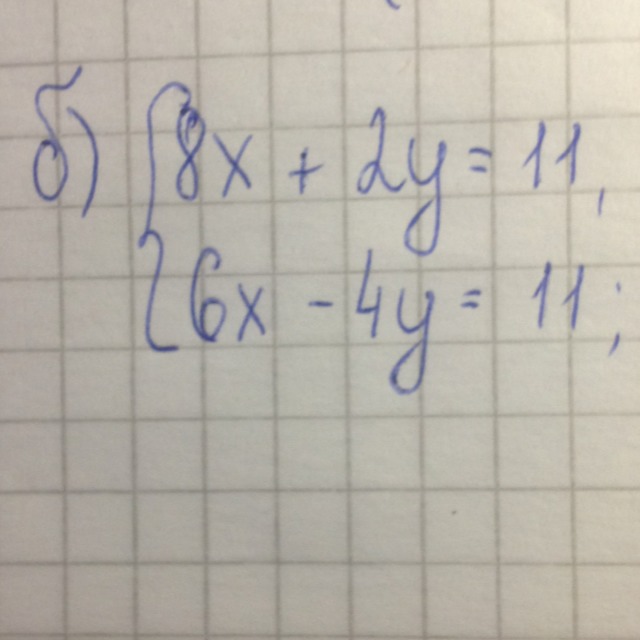 б) { 8x + 2y = 11,
6x - 4y = 11;